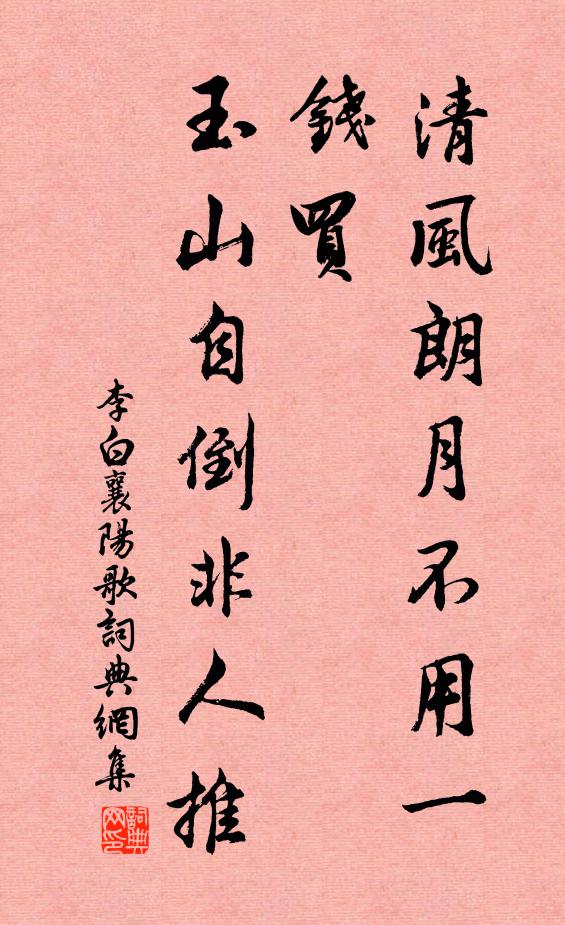 清風朗月不用一
錢買
玉山自倒非人推
李白襄陽歌詞典網集
詞典
网印